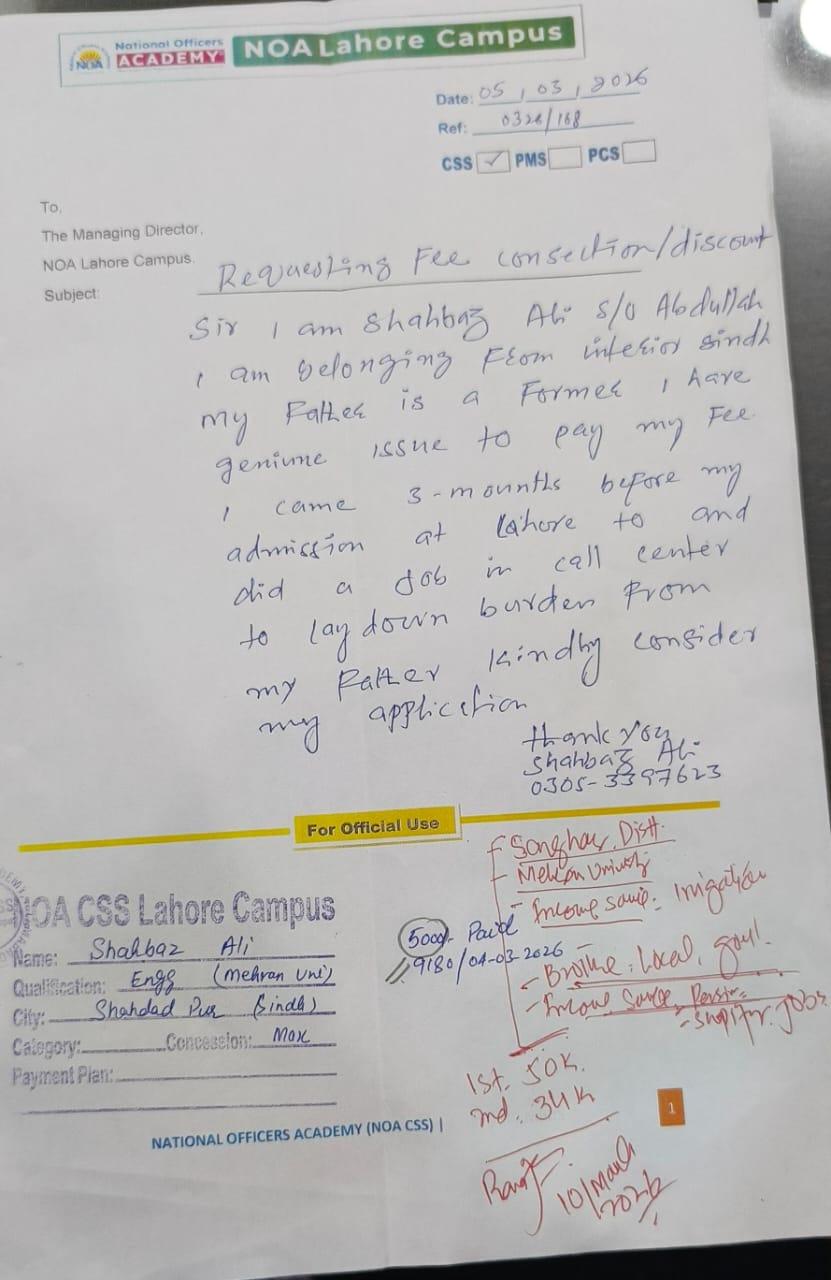 National Officers
ACADEMY
NOA
NOA Lahore Campus
Date: 05 / 03 / 2026
Ref: 0326/168
CSS ✓ PMS PCS
To,
The Managing Director,
NOA Lahore Campus.
Subject: Requesting Fee consection/discount
Sir I am Shahbaz Ali S/O Abdullah
I am belonging From interior sindh
my Father is a Former I have
geniune issue to pay my Fee
I came 3-mounths before my
admission at Lahore to and
did a Job in call center
to lay down burden From
my Father kindly consider
my application
thank you
Shahbaz Ali
0305-3397623
For Official Use
Sanghar Distt.
Mehran University
Income : Irrigation
5000/- Paid
9180/04-03-2026
Local, govt.
Income Source,
Jobs
1st. 50K.
2nd. 34K
10/March
2026
NOA CSS Lahore Campus
Name: Shahbaz Ali
Qualification: Engg (mehran uni)
City: Shahdad Pur (Sindh)
Category: Concession: Max
Payment Plan:
NATIONAL OFFICERS ACADEMY (NOA CSS) |
1